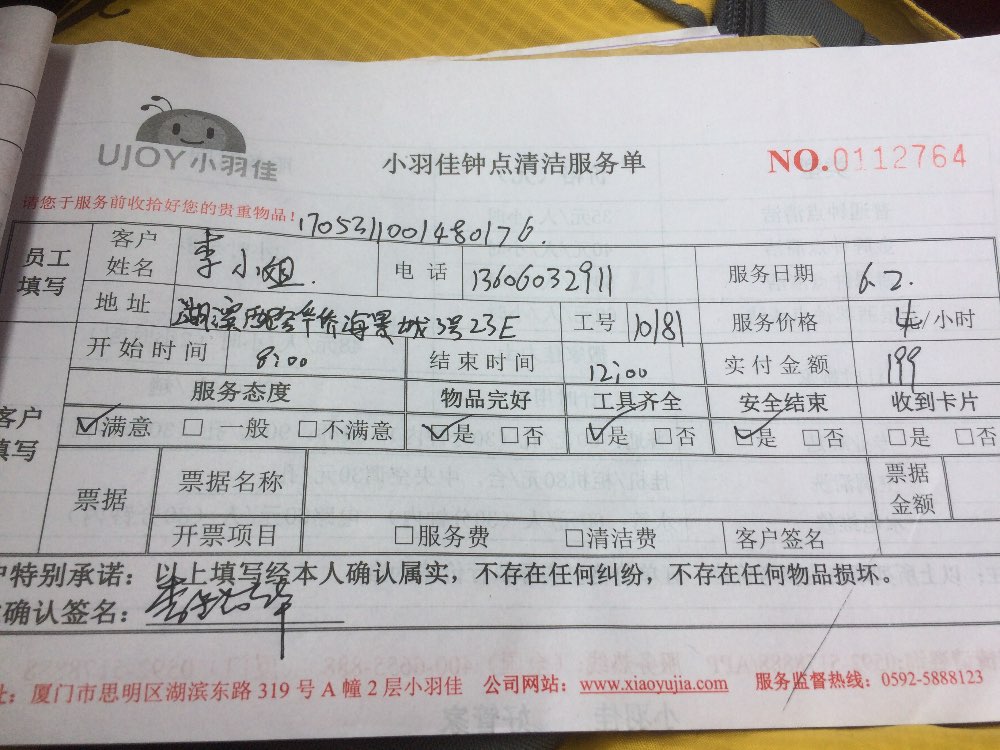 UJOY小羽佳
小羽佳钟点清洁服务单
NO.0112764
请您于服务前收拾好您的贵重物品！
1705311001480176.
员工填写 客户姓名 李小姐. 电话 13606032911 服务日期 6.2.
地址 湖滨 华侨海景城3号23E 工号 10181 服务价格 元/小时
客户填写 开始时间 8:00 结束时间 12:00 实付金额 199
服务态度 物品完好 工具齐全 安全结束 收到卡片
☑满意 □一般 □不满意 ☑是 □否 ☑是 □否 ☑是 □否 □是 □否
票据 票据名称 票据金额
开票项目 □服务费 □清洁费 客户签名
户特别承诺：以上填写经本人确认属实，不存在任何纠纷，不存在任何物品损坏。
确认签名：
址：厦门市思明区湖滨东路 319 号 A 幢 2 层小羽佳 公司网站：www.xiaoyujia.com 服务监督热线：0592-5888123